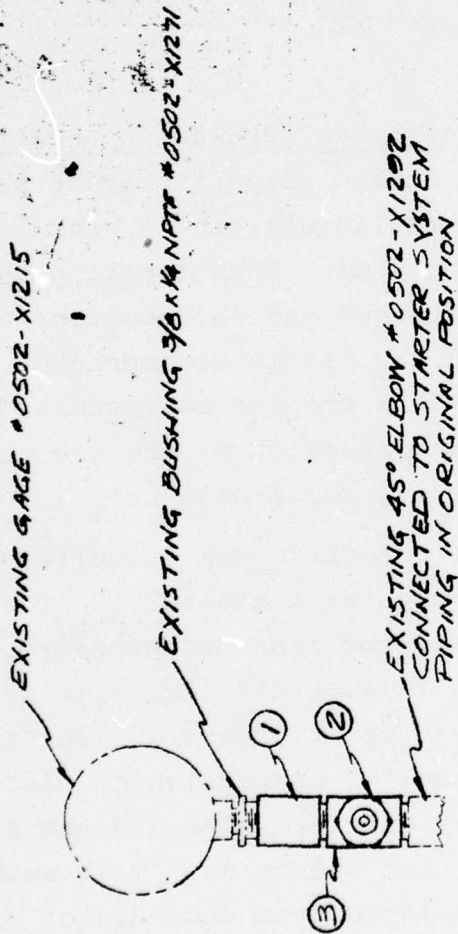 EXISTING GAGE #0502-X1215
EXISTING BUSHING 3/8 X 1/4 NPTF #0502-X1271
1
2
3
EXISTING 45° ELBOW #0502-X1292
CONNECTED TO STARTER SYSTEM
PIPING IN ORIGINAL POSITION